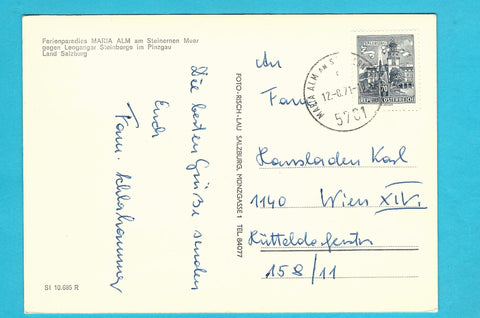 Ferienparadies MARIA ALM am Steinernen Meer
gegen Leoganger Steinberge im Pinzgau
Land Salzburg
Die besten Grüße senden
Euch
Fam.
SI 10.685 R
FOTO-RISCH-LAU SALZBURG, MÜNZGASSE 1 TEL. 84077
MARIA ALM AM
12.-8.71
5761
REPUBLIK ÖSTERREICH
An
Fam.
Karl
1140 Wien XIV.
158/11